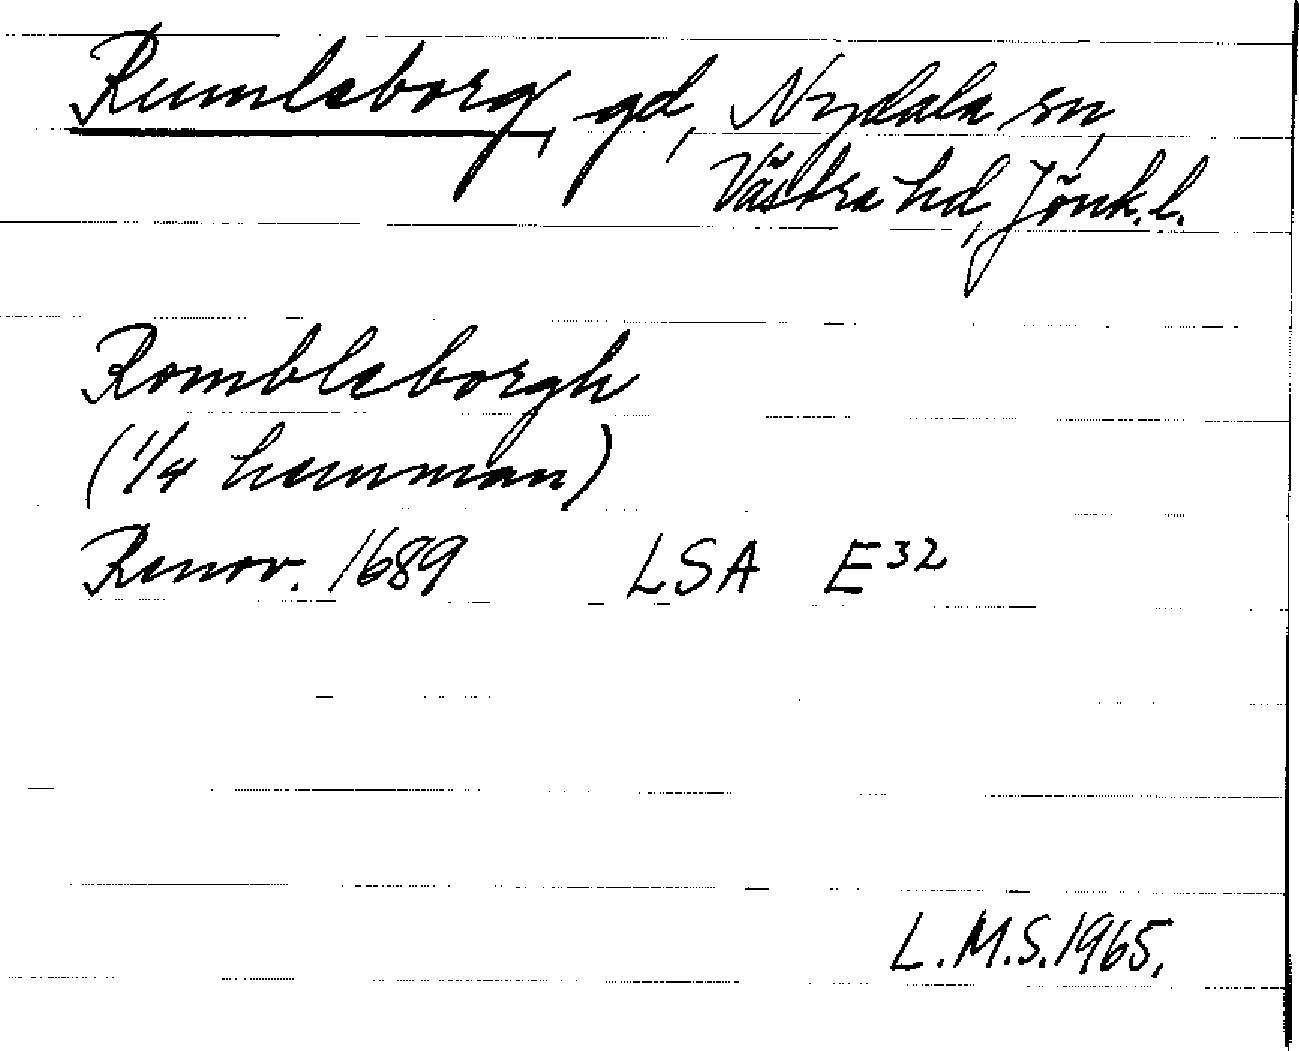 Rumleborg, gd, Nydala sn,
Västra hd, Jönk. l.
Rombleborgh
(1/4 hemman)
Renov. 1689 LSA E32
L.M.S. 1965.